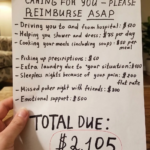 CARING FOR YOU - PLEASE
REIMBURSE ASAP
- Driving you to and from hospital: $120
- Helping you shower and dress: $75 per day
- Cooking your meals including soups: $50 per
meal
- Picking up prescriptions: $60
- Extra laundry due to your situation:
- Sleepless nights because of your pain: $200
that note
- Missed poker night with friends: $300
- Emotional support: $500
TOTAL DUE:
$2,105